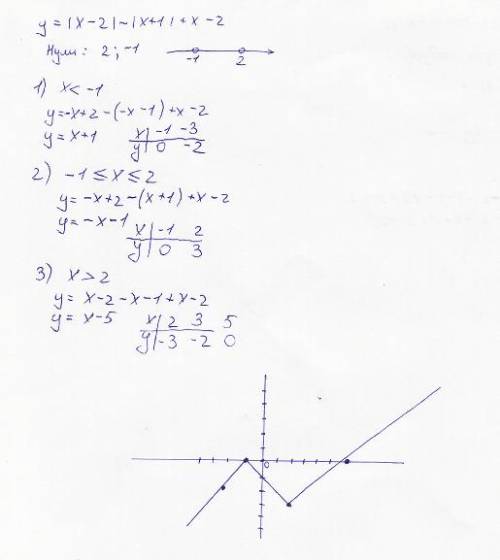 y = |x-2| - |x+1| + x - 2
Нули: 2; -1
-1 2
1) x < -1
y = -x+2 - (-x-1) + x - 2
y = x+1
x | -1 -3
y | 0 -2
2) -1 ≤ x ≤ 2
y = -x+2 - (x+1) + x - 2
y = -x-1
x | -1 2
y | 0 3
3) x > 2
y = x-2-x-1+x-2
y = x-5
x | 2 3 5
y | -3 -2 0
0